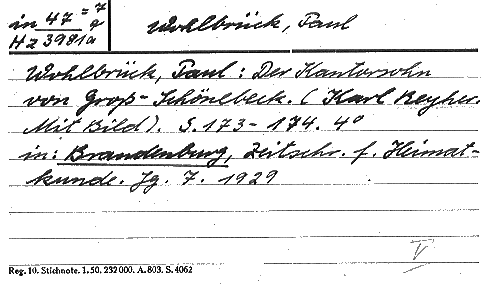 in 47 = 7 Wohlbrück, Paul
Hz 3981a
Wohlbrück, Paul: Der Kantorsohn
von Groß-Schönebeck. (Karl Reyher.
Mit Bild). S. 173-174. 4°
in: Brandenburg, Zeitschr. f. Heimat-
kunde. Jg. 7. 1929
V
Reg. 10. Stichnote. 1. 50. 232 000. A. 803. S. 4062